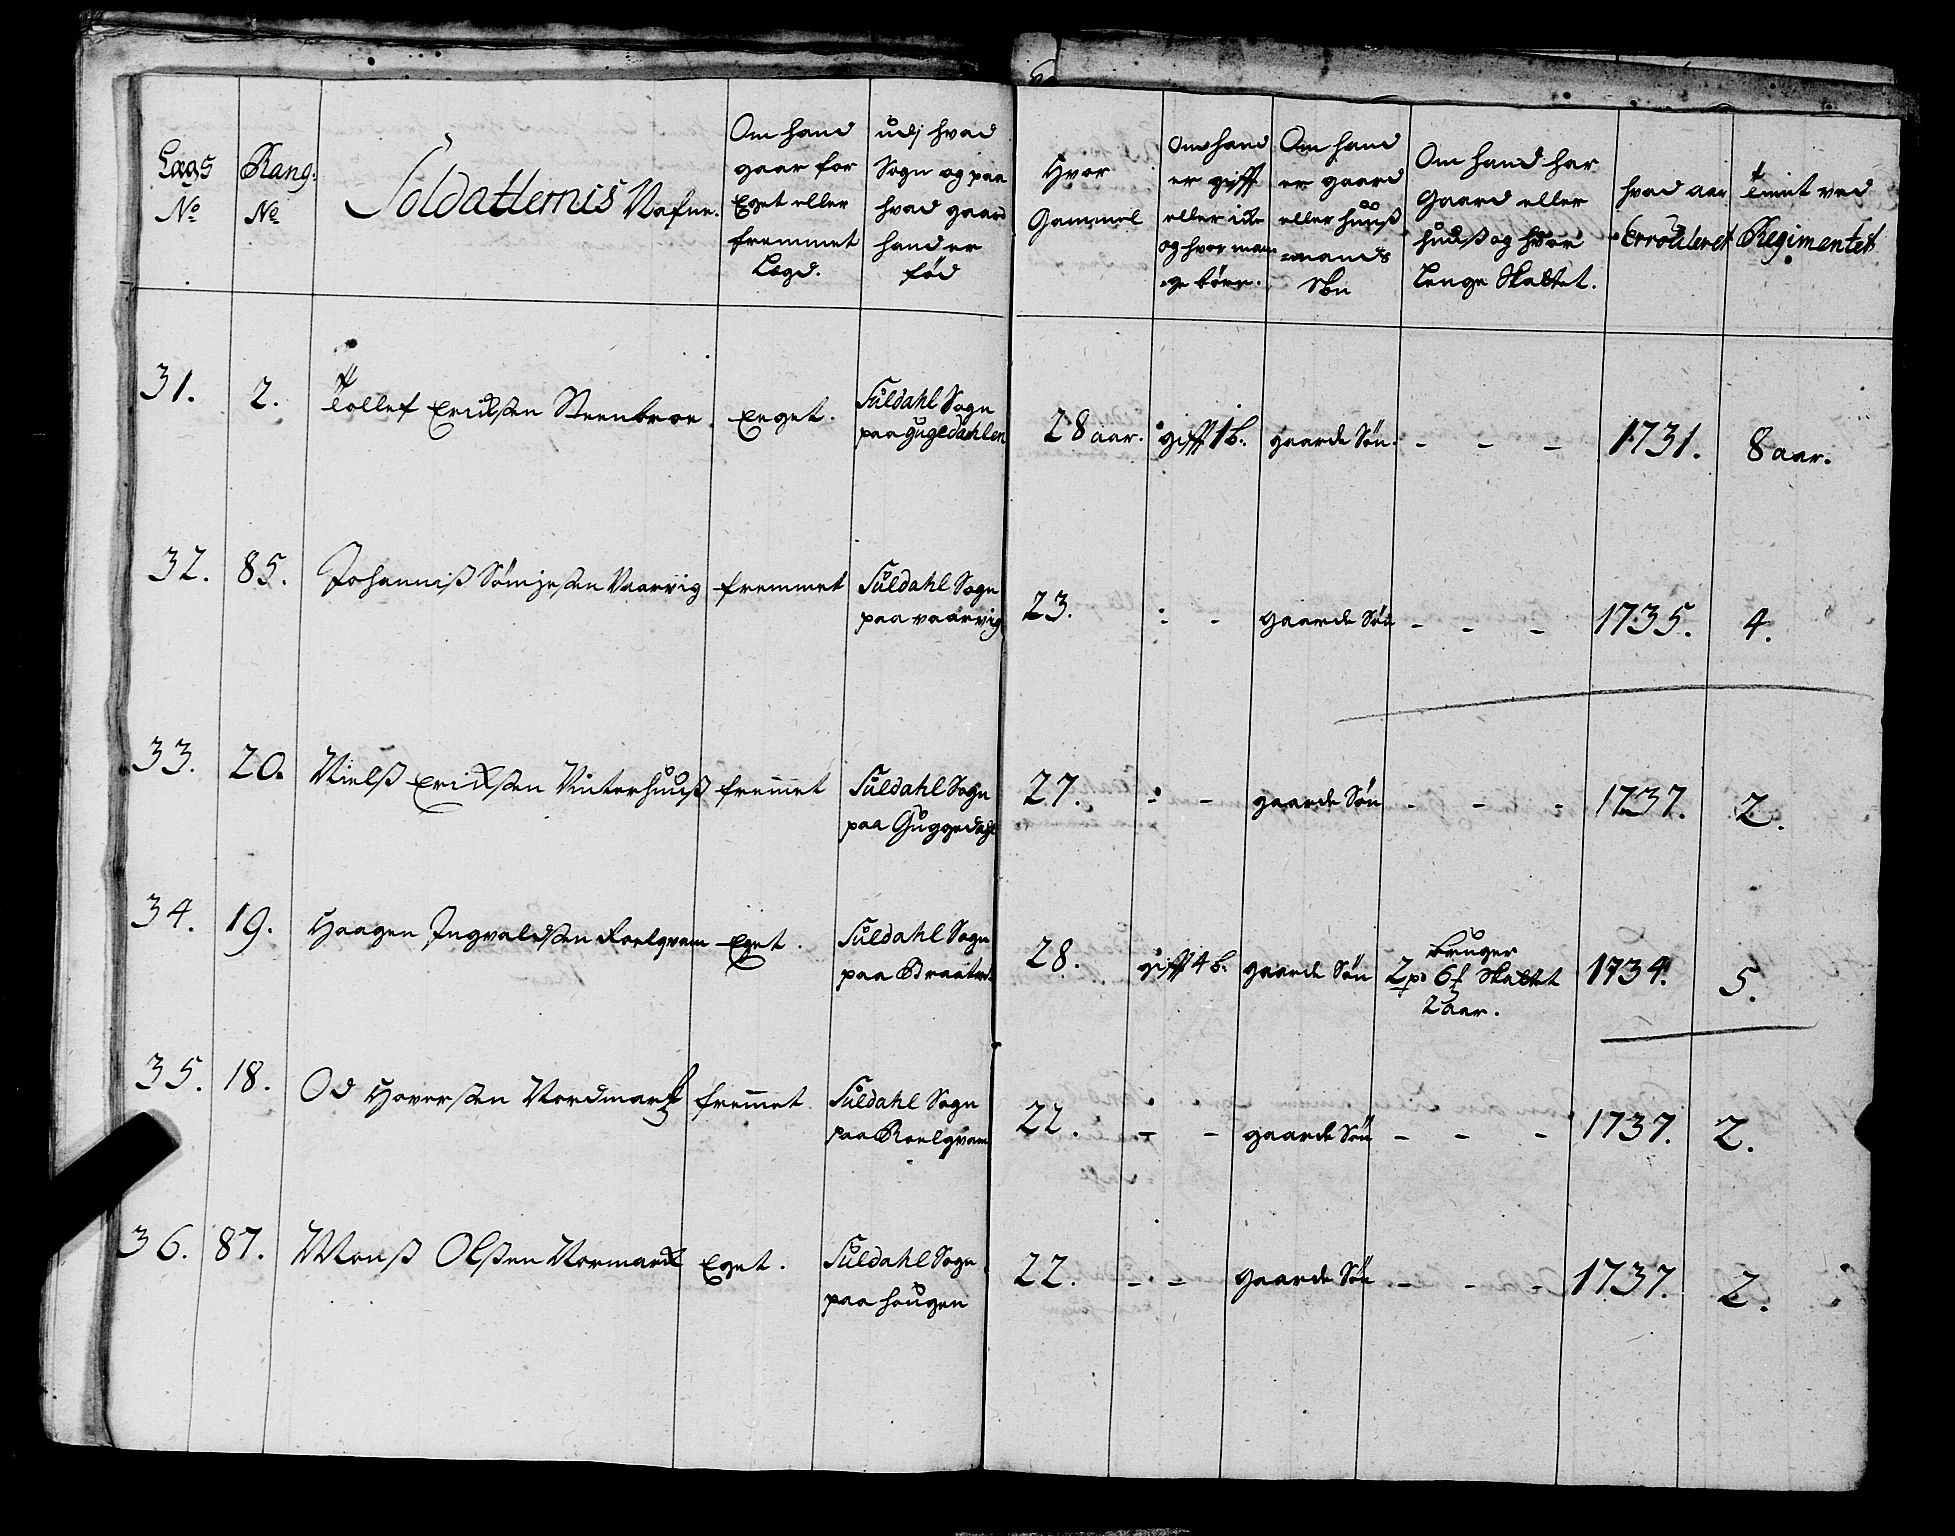 Lægs
No
Rang.
No
Soldatternis Nafne.
Om hand
gaar for
Eget eller
fremmet
Lægd.
udj hvad
Sogn og paa
hvad gaard
hand er
fød
Hvor
Gammel
Om hand
er gifft
eller icke
og hvor man-
ge börn.
Om hand
er gaard
eller huuß
mands
Søn
Om hand har
Gaard eller
huuß og hvor
Lenge Skattet.
hvad aar
Enroulleret
Tient ved
Regimentet
31. 2. Tollef Ericksen Steenbroe Eeget. Suldahl Sogn
paa gugedahlen
28 aar. gifft 1 b. gaarde Søn. - - - 1731. 8 aar.
32. 85. Johanniß Sömjesen Vaarvig fremmet Suldahl Sogn
paa vaarvig
23. - - gaarde Søn - - - 1735. 4.
33. 20. Nielß Ericksen Vinterhuuß fremmet Suldahl Sogn
paa Guggedahl
27. - - gaarde Søn - - - 1737. 2.
34. 19. Haagen Ingvaldsen Roelqvam Eget. Suldahl Sogn
paa Braatvet
28. gifft 4 b. gaarde Søn bruger
2 pd 6 f Skattet
2 aar.
1734. 5.
35. 18. Od Hoversen Nordmarck fremmet Suldahl Sogn
paa Roelqvam
22. - - gaarde Søn - - - 1737. 2.
36. 87. Monß Olsen Normarck Eget. Suldahl Sogn
paa hougen
22. - - gaarde Søn - - - 1737. 2.